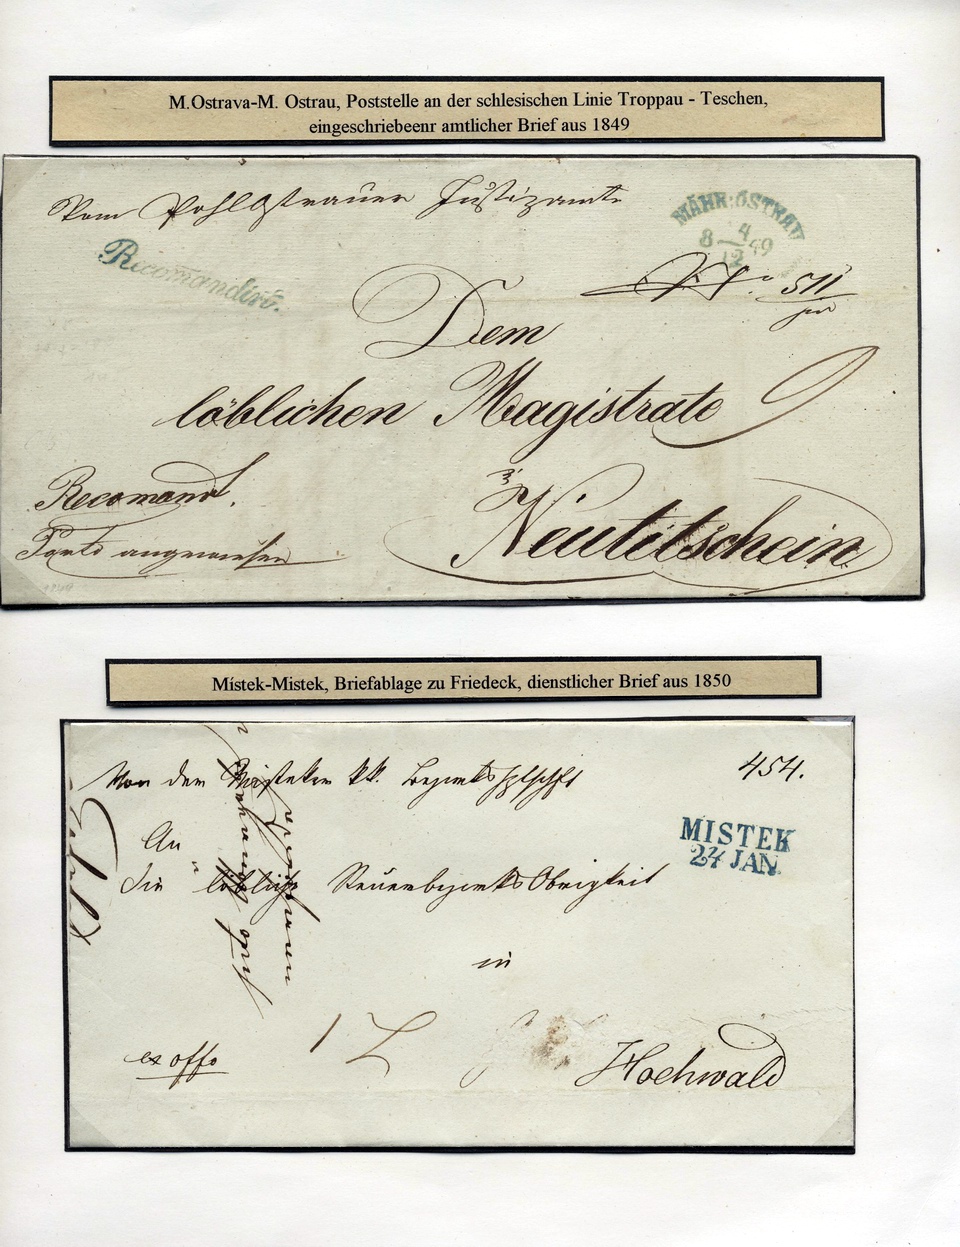 M.Ostrava-M. Ostrau, Poststelle an der schlesischen Linie Troppau - Teschen,
eingeschriebeenr amtlicher Brief aus 1849
Vom Pohlostrauer Justizamte
MÄHR:OSTRAU
8 4/12 49
Recomandirt.
No. 511
Dem
löblichen Magistrate
Recomand.
zu
Neutitschein
Porto angewiesen
1849
Místek-Mistek, Briefablage zu Friedeck, dienstlicher Brief aus 1850
Von der Misteker kk.
454.
MISTEK
24 JAN
An
die löbliche Steuerbezirks Obrigkeit
in
ex offo
Hochwald